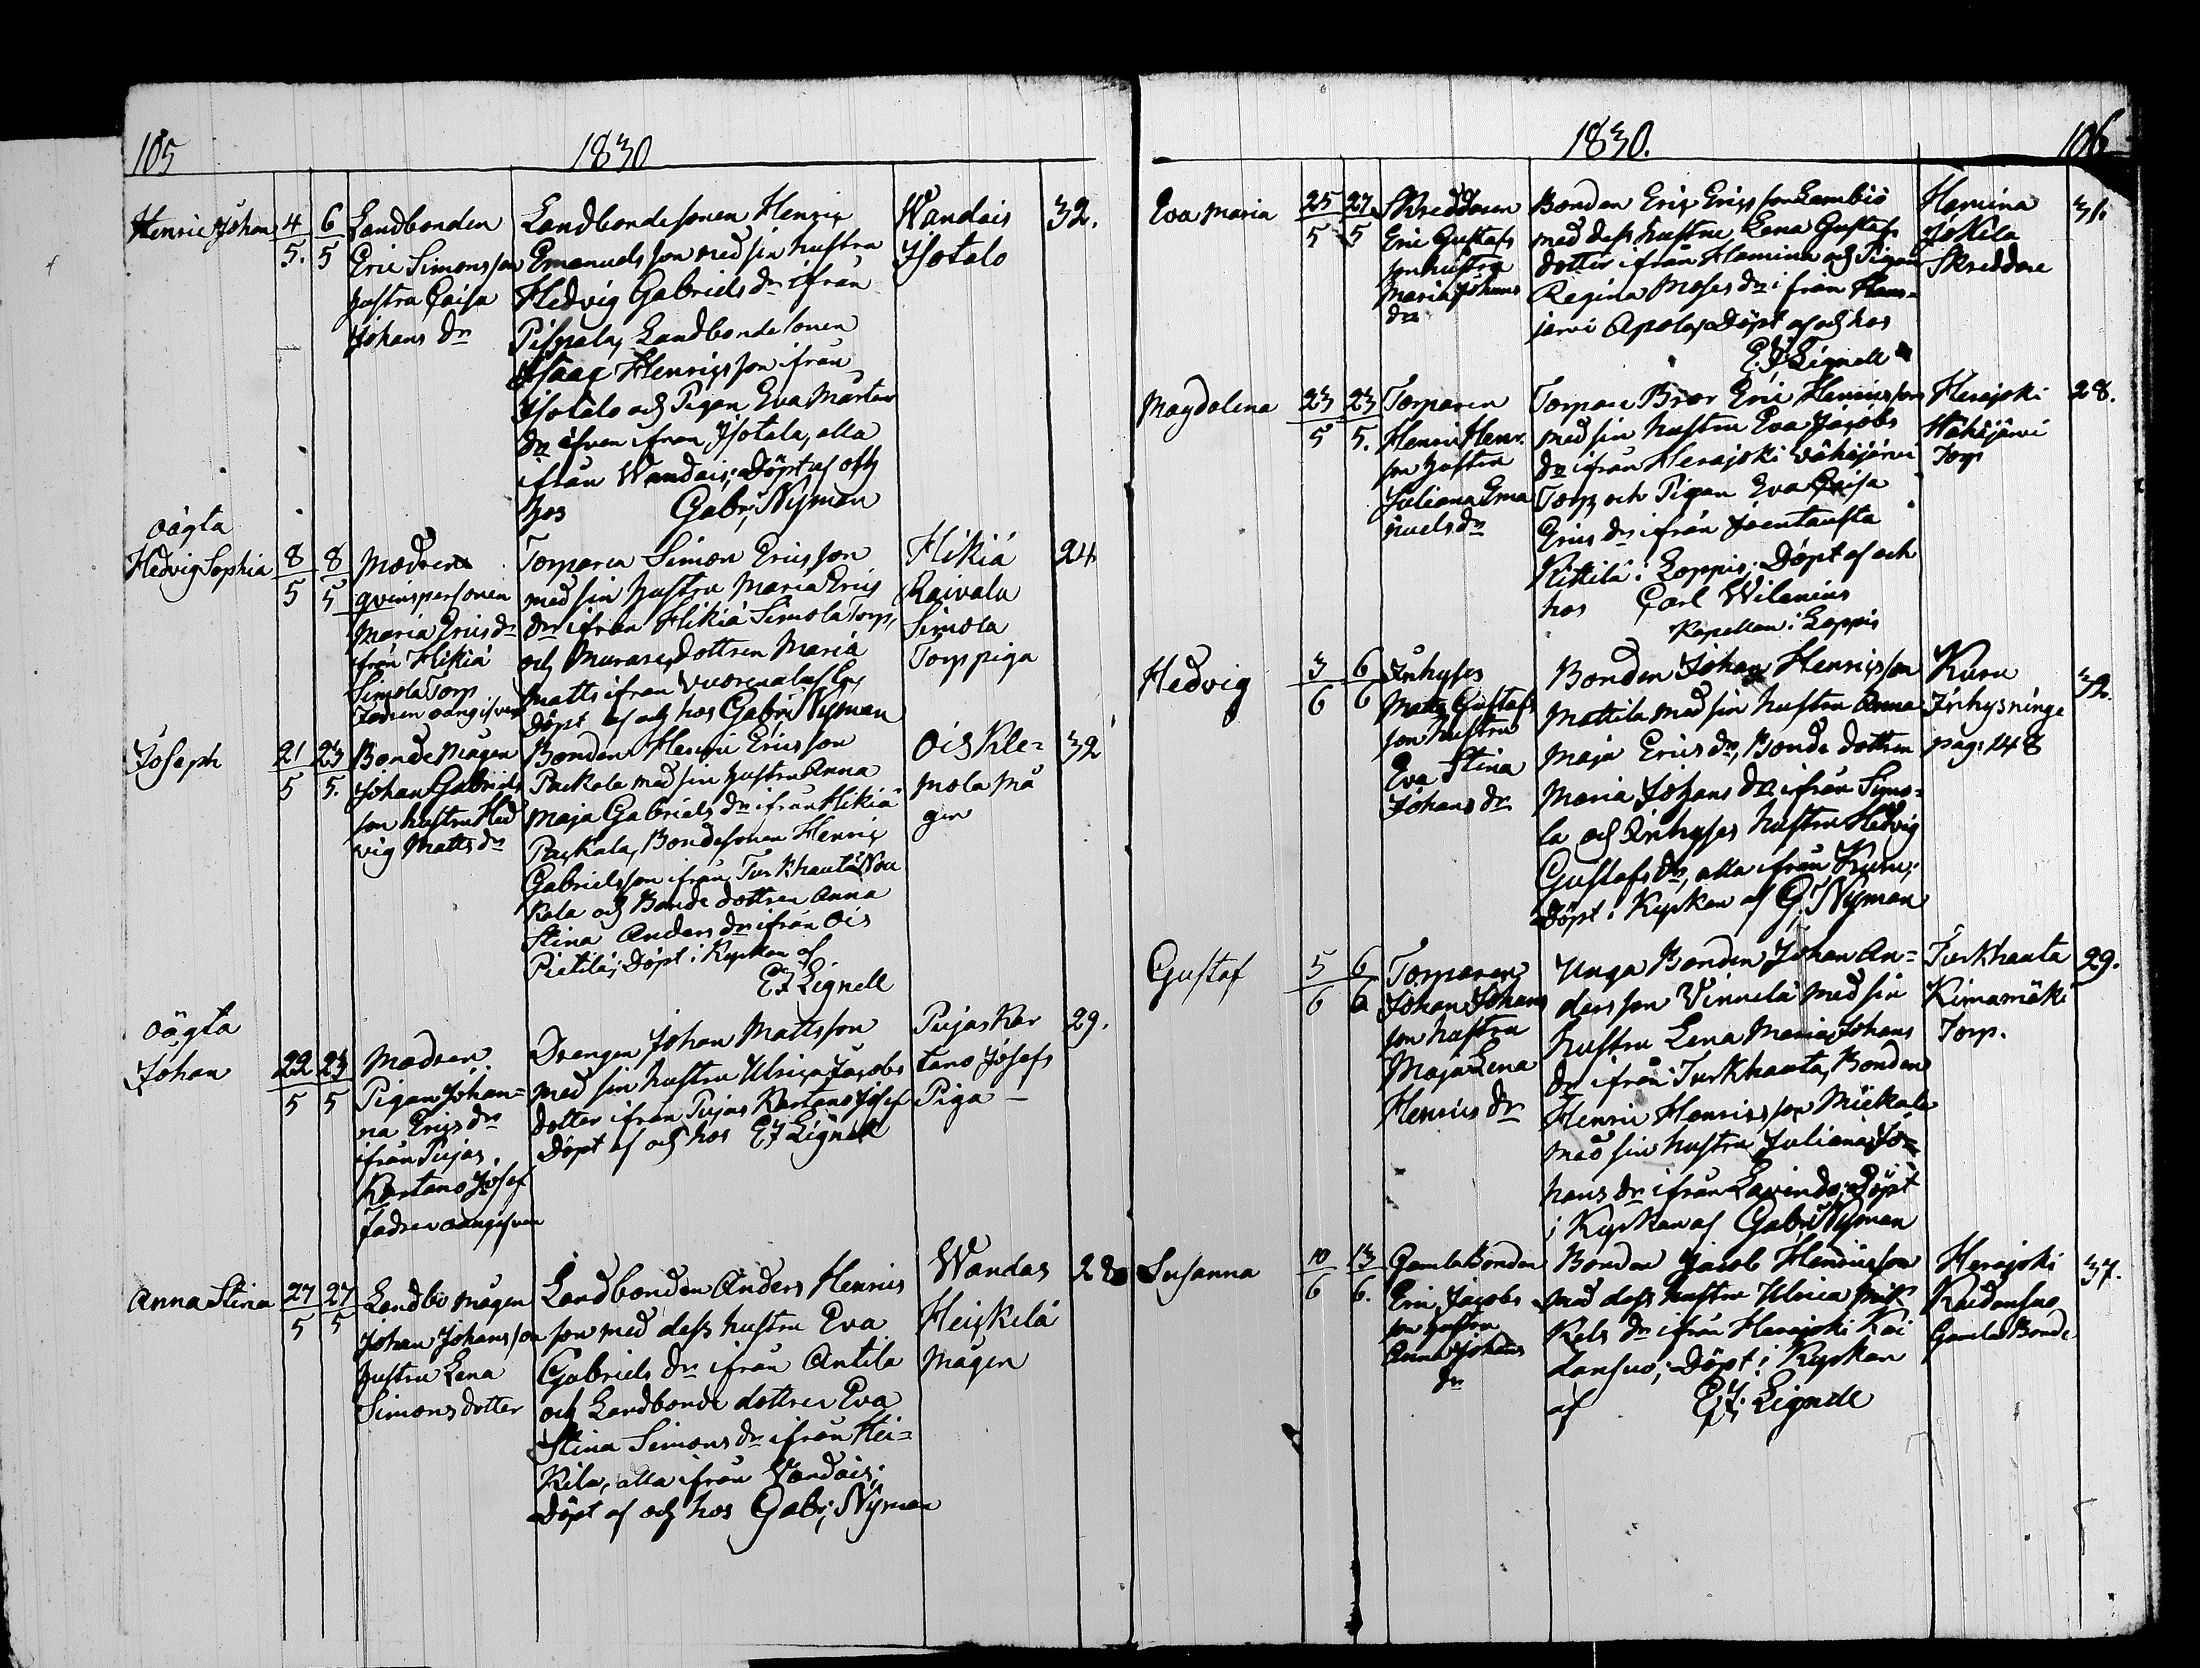 105
1830
Henric Johan 4/5. 6/5
Landbonden
Eric Simonsson
hustra Caisa
Johans dr
Landbondesonen Henric
Emanuelsson med sin hustra
Hedvig Gabriels dr ifrån
Pispala, Landbondesonen
Isaac Henricsson ifrån
Isotalo och Pigan Eva Mårtens
dr äfven ifrån Isotalo, alla
ifrån Wandais; Döpt af och
hos Gabr; Nyman
Wandais
Isotalo
32.
oägta
Hedvig Sophia 8/5 8/5
Modren
qvinspersonen
Maria Erics dr
ifrån Hikiä
Simola Torp
Fadren oangifven
Torparen Simon Ericsson
med sin hustru Maria Erics
dr ifrån Hikiä Simola Torp,
och Murare dottren Maria
Matts ifrån
Döpt af och hos Gabr; Nyman
Hikiä
Raivala
Simola
Torppiga
24
Joseph 21/5 23/5.
Bonde Mågen
Johan Gabriels
son hustru Hed
vig Matts dr
Bonden Henric Ericsson
Packala med sin hustru Anna
Maja Gabriels dr ifrån Hikiä
Packala, Bondesonen Henric
Gabrielsson ifrån Turkhauta Nou
kala och Bonde dottren Anna
Stina Anders dr ifrån Ois
Pietilä; Döpt i Kyrkan af
EJ Lignell
Ois Kle-
mola Må
gen
32
oägta
Johan 22/5 23/5
Modren
Pigan Johan-
na Erics dr
ifrån Pujas
Kartano Josef
Fadren oangifven
Drengen Johan Mattsson
med sin hustru Ulrica Jacobs
dotter ifrån Pujas Kartano Josef
Döpt af och hos EJ Lignell
Pujas Kar
tano Josefs
Piga —
29.
Anna Stina 27/5 27/5
Landbo Mågen
Johan Johansson
hustru Lena
Simons dotter
Landbonden Anders Henrics
son med dess hustru Eva
Gabriels dr ifrån Antila
och Landbonde dottren Eva
Stina Simons dr ifrån Hei-
kilä, alla ifrån Vandais;
Döpt af och hos Gabr; Nyman
Wandas
Heickilä
Mågen
1830.
106
Eva Maria 25/5 27/5
Skreddaren
Eric Gustafs
son hustra
Maria Johans
dr
Bonden Eric Ericsson Lambiö
med dess hustru Lena Gustafs
dotter ifrån Hamina och Pigan
Regina Moses dr ifrån Haus-
järvi Apola; Döpt af och hos
E. J. Lignell
Hamina
Jokila
Skreddare
31.
Magdalena 23/5 23/5.
Torparen
Henric Henr.
son hustru
Juliana Ema
nuels dr
Torpare Bror Eric Henricsson
med sin hustru Eva Jacobs
dr ifrån Herajoki Vähäjärvi
Torp och Pigan Eva Caisa
Erics dr ifrån Joentausta
Kittilä i Loppis; Döpt af och
hos Carl Wilenius
Kapellan i Loppis
Herajoki
Wähäjärvi
Torp
28.
Hedvig 3/6 6/6
Inhyses
Matts Gustafs
son hustru
Eva Stina
Johans dr
Bonden Johan Henricsson
Mattila med sin hustru Anna
Maja Erics dr, Bonde dottren
Maria Johans dr ifrån Simo-
la och Inhyses hustru Hedvig
Gustafs dr, alla ifrån Kuru;
Döpt i Kyrkan af G. Nyman
Kuru
Inhysninge
pag: 148
32.
Gustaf 5/6 6/6
Torparen
Johan Johans
son hustru
Maja Lena
Henrics dr
Unga Bonden Johan An-
dersson Vinnelä med sin
hustru Lena Maria Johans
dr ifrån Turkhauta, Bonden
Henric Henricsson Mickala
med sin hustru Juliana Jo-
hans dr ifrån Lavinda; Döpt
i Kyrkan af Gabr; Nyman
Turkhauta
Kimamäki
Torp.
29.
Susanna 10/6 13/6.
Gamla Bonden
Eric Jacobs
son hustru
Anna Johans
dr
Bonden Jacob Henricsson
med dess hustru Ulrica Mic
kels dr ifrån Herajoki Kai
dansuo; Döpt i Kyrkan
af E. J. Lignell
Herajoki
Kaidansuo
Gamla Bonde
37.